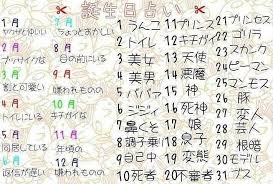 誕生日占い
1月
ヤクザでゆいいつ
2月
ブッサイクな
3月
割と可愛い
4月
トイレにいる
5月
同居している
6月
返信が遅い
7月
ちょっとおかしい
8月
目の前にいる
9月
嫌われものの
10月
キチガイな
11月
年頃の
12月
嫌われもの
1 うんこ
2 トイレ
3 美女
4 美男
5 ババァ
6 ジジィ
7 鼻くそ
8 調子乗り
9 自己中
10 死者
11 プリンス
12 キチガイ
13 天使
14 悪魔
15 神
16 死神
17 娘
18 息子
19 変態
20 不審者
21 プリンセス
22 ゴリラ
23 スカンク
24 ピーマン
25 マンモス
26 豚
27 変人
28 芸人
29 モデル
30 デブ
31 ブス